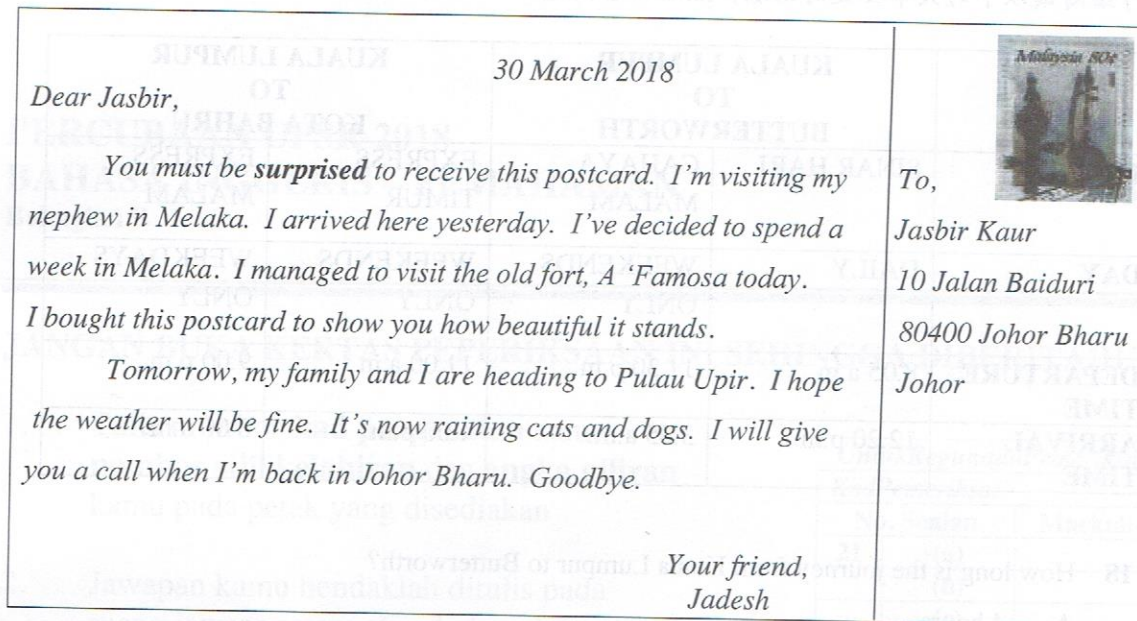 30 March 2018
Dear Jasbir,
You must be surprised to receive this postcard. I'm visiting my
nephew in Melaka. I arrived here yesterday. I've decided to spend a
week in Melaka. I managed to visit the old fort, A 'Famosa today.
I bought this postcard to show you how beautiful it stands.
Tomorrow, my family and I are heading to Pulau Upir. I hope
the weather will be fine. It's now raining cats and dogs. I will give
you a call when I'm back in Johor Bharu. Goodbye.
Your friend,
Jadesh
Malaysia 80¢
To,
Jasbir Kaur
10 Jalan Baiduri
80400 Johor Bharu
Johor